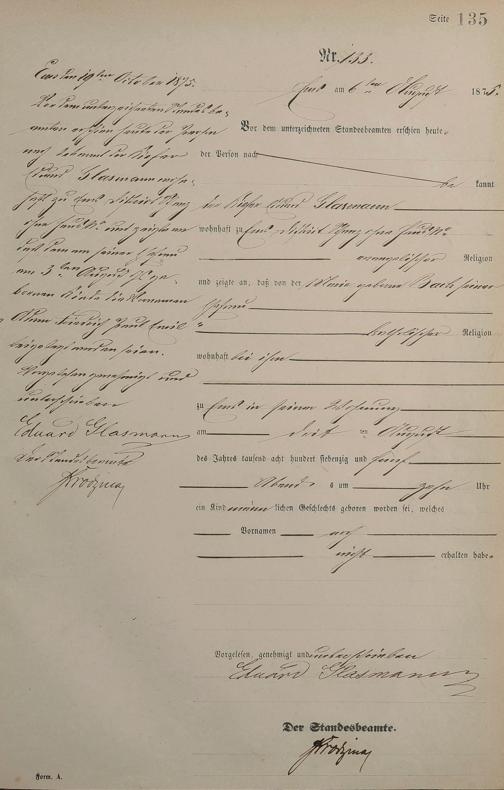 Seite 135
Nr. 133.
Ems am 6ten August 1875.
Vor dem unterzeichneten Standesbeamten erschien heute
der Person nach
be kannt
der Küfer Eduard Glasmann
wohnhaft zu Ems
evangelischer Religion
und zeigte an, daß von der Maria geborene Bach seiner
Ehefrau
katholischer Religion
wohnhaft bei ihm
zu Ems in seiner Wohnung
am drit ten August
des Jahres tausend acht hundert siebenzig und fünf
Abends um zehn Uhr
ein Kind männ lichen Geschlechts geboren worden sei, welches
Vornamen noch
nicht erhalten habe
Vorgelesen, genehmigt und unterschrieben
Eduard Glasmann
Der Standesbeamte.
Ems den 19ten October 1875.
Vor dem unterzeichneten Standesbe-
amten erschien heute der Person
nach bekannt der Küfer
Eduard Glasmann wohn-
haft zu Ems
und zeigte an
am 3ten August
bornen Kinde die Vornamen
beigelegt worden seien.
Vorgelesen genehmigt und
unterschrieben
Eduard Glasmann
Der Standesbeamte
Form. A.